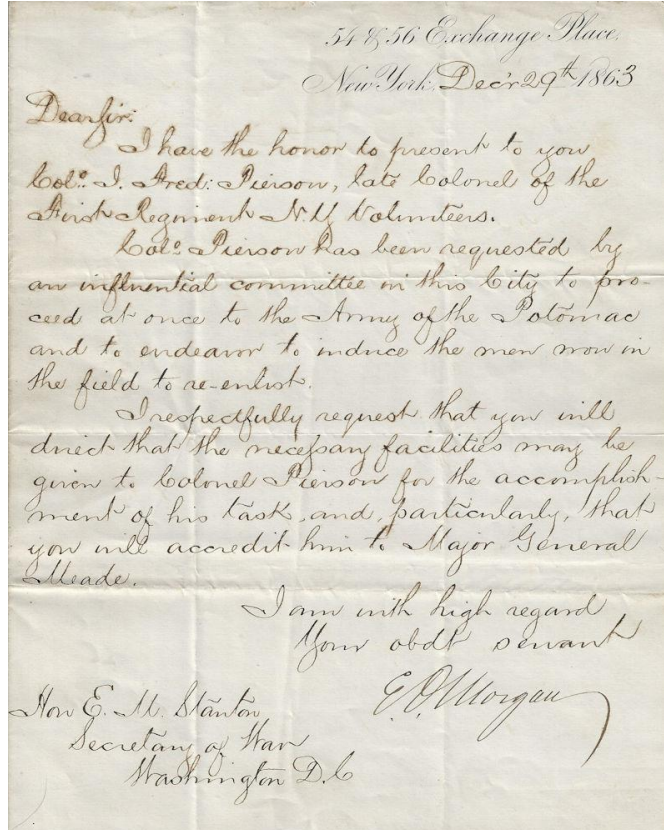 54 & 56 Exchange Place.
New York, Dec'r 29th 1863
Dear Sir:
I have the honor to present to you
Colo. J. Fred: Pierson, late Colonel of the
First Regiment N.Y Volunteers.
Colo. Pierson has been requested by
an influential committee in this City to pro-
ceed at once to the Army of the Potomac
and to endeavor to induce the men now in
the field to re-enlist.
I respectfully request that you will
direct that the necessary facilities may be
given to Colonel Pierson for the accomplish-
ment of his task, and, particularly, that
you will accredit him to Major General
Meade.
I am with high regard
Your obdt servant
E. D. Morgan
Hon E. M. Stanton
Secretary of War
Washington D.C